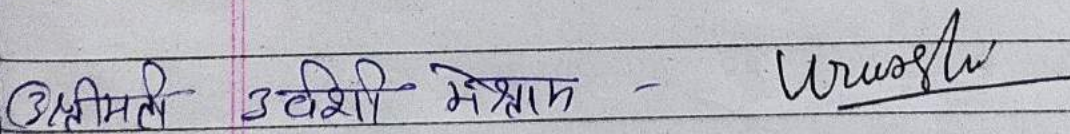 ③ श्रीमती उर्वशी मेश्राम - Urvashi